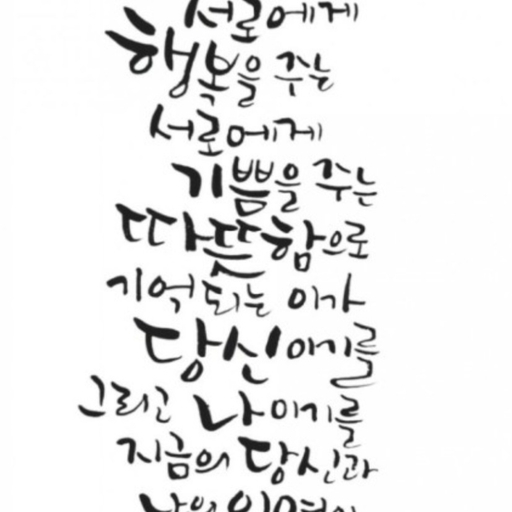 서로에게
행복을 주는
서로에게
기쁨을 주는
따뜻함으로
기억되는 이가
당신이기를
그리고 나이기를
지금의 당신과
나의 인연이